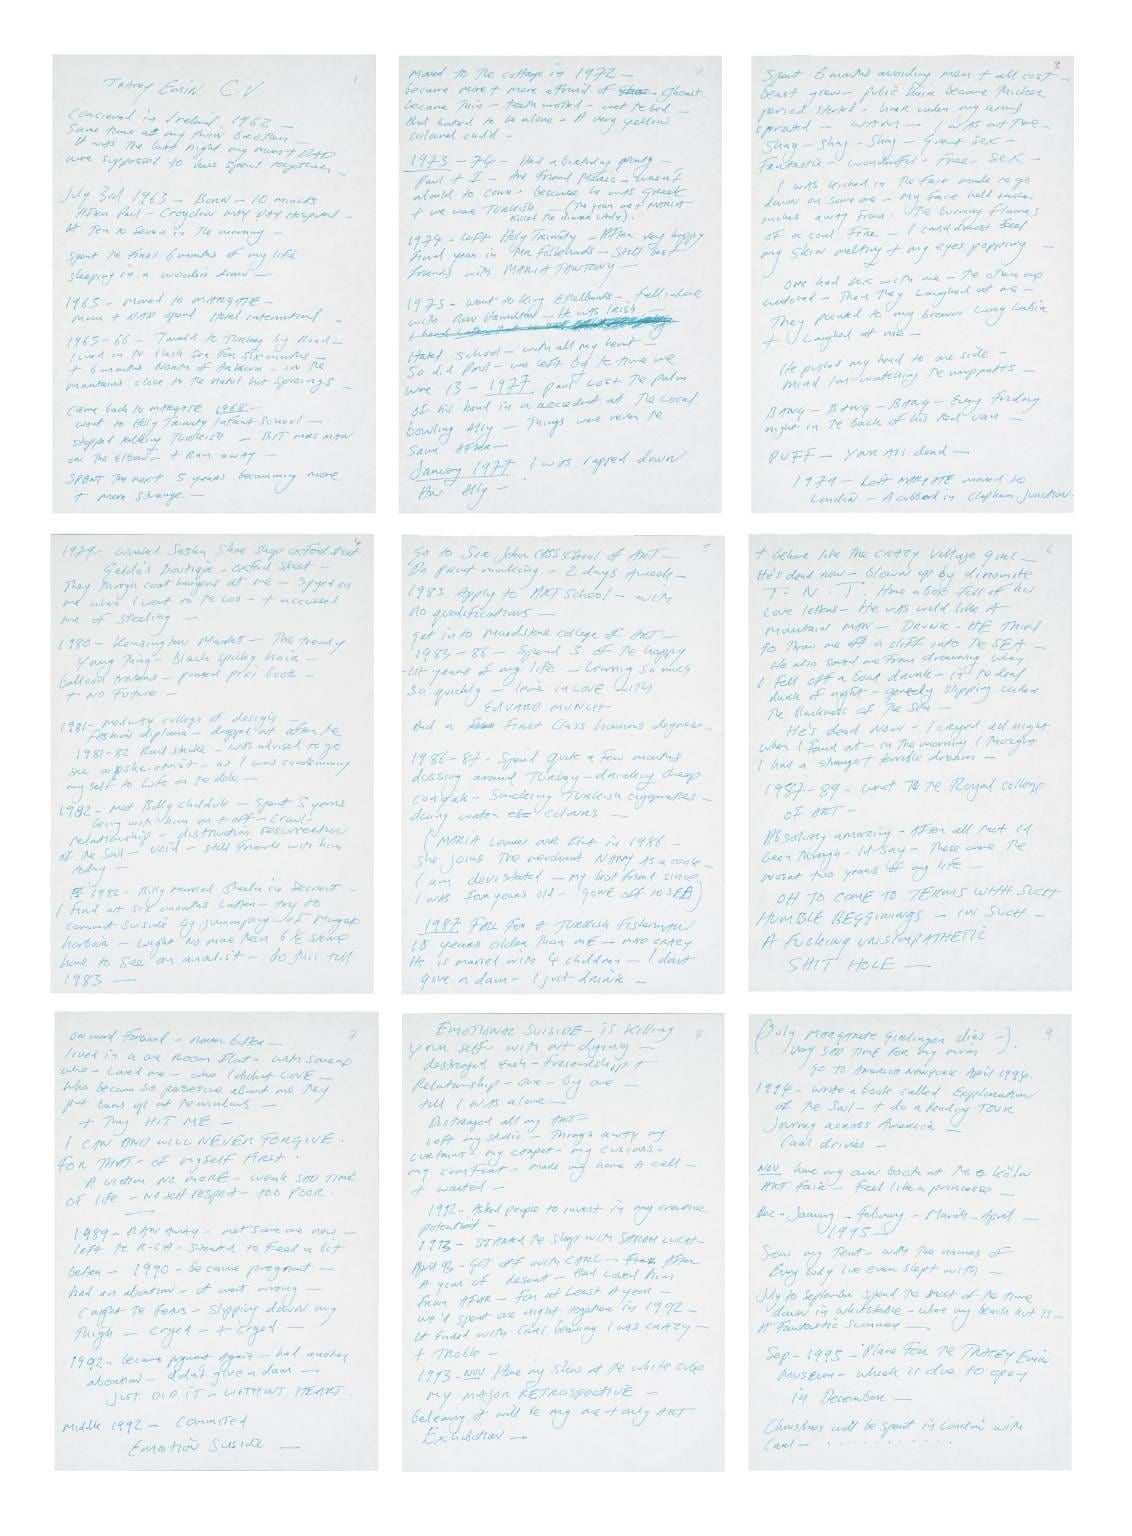 TRACEY EMIN C.V. 1
Concieved in Ireland. 1962 —
Same time as my twin brother —
It was the last night my mum + DAD
were supposed to have spent together —
July 3rd 1963 — Born — 10 minuets
After Paul — Croydon MAY DAY Hospital —
At Ten to seven in the morning —
spent the first 6 months of my life
sleeping in a wooden draw —
1965 — moved to MARGATE —
mum + DAD opend Hotel international —
1965-66 — Traveld to Turkey by Road —
lived in the black Sea for six months —
+ 6 months North of Ankara — in the
mountains close to the natul hot springs —
came back to MARGATE 1968 —
went to Holy Trinity Infant School —
stopped talking Turkish — BIT mrs MAN
on the Elbow — + RAN away —
SPENT the next 5 years becomming more
+ more strange —
moved to the cottage in 1972 — 2
became more + more afraid of ghosts.
became thin — teeth rotted — wet the bed —
And hated to be alone — A very yellow
colored child —
1973 — 74 — Had a birthday party —
Paul + I — are friend Mario — wasn't
aloud to come — because he was Greek
+ we were Turkish — (The year me + MARIA
killed the dinner lady).
1974 — left Holy Trinity — After very happy
final year in Mr — Still best
friends with MARIA —
1975 — went to King Ethelberts — fell in love
with Ron Hamilton — He was IRISH —
Hated school — with all my heart —
So did Paul — we left by the time we
were 13 — 1977 paul lost the palm
of his hand in a accedent at the local
bowling Ally — Things were never the
same AFTER —
January 1977 I was rapped down
An Ally —
3
Spent 6 months avoiding men + all cost —
breast grew — pubic hair became thicker
period started — hair under my arms
sprouted — WAM — I WAS out there —
Shag — Shag — Shag — Great Sex —
Fantastic — wonderful — Free — SEX —
I WAS kicked in the face made to go
down on some one — my face held inches
inches away from the burning flames
of a coal fire — I could almost feel
my skin melting + my eyes popping —
one had sex with me — the others
watched — Then they laughed at me —
They pointed to my brown long labia
+ laughed at me —
He pushed my head to one side —
mind Im watching the muppetts —
BANG — BANG — BANG — Every friday
night in the back of his red van —
PUFF — Your All dead —
1979 — Left MARGATE moved to
London — A cubbord in Clapham Junction —
4
1979 — worked Sasha Shoe shop oxford street
Gelda's Boutique — oxford street —
They through coat hangers at me — Spyed on
me when I went to the loo — + accussed
me of stealing —
1980 — Kensington Market — The trendy
young Thing — Black spicky hair —
balloon trousers — pointed pixi boots —
+ NO Future —
1981 — medway college of design —
fashion diplama — dropped out after the
1981-82 Rail strike — was advised to go
see — as I was condemning
my self to Life on the dole —
1982 — met Billy childish — Spent 5 years
being with him on + off — Cruel —
relationship — distruction resurrection
of the Soul — void — still friends with him
today —
1982 — Billy married Sheila in Secreet —
I find out six months Later — try to
commit suicide by jumping off Margate
harbour — wight no more than 6½ stone
have to see an analist — do this till
1983 —
Go to Sir John CASS school of ART — 5
Do print making — 2 days a week —
1983 Apply to ART School — with
no qualifications —
get in to Maidstone college of ART —
1983-86 — Spend 3 of the happy
-ist years of my life — Learning so much
so quickly — in LOVE with
EDVARD MUNCH
And a first Class honours degree —
1986-87 — Spend quite a few months
dossing around Turkey — drinking cheap
congak — smoking Turkish ciggarettes —
doing water colours —
(MARIA leaves our flat in 1986 —
she joins the merchant NAVY as a cook —
I am devistated — my best friend since
I was four years old — gone off to SEA)
1987 FALL for a TURKISH FISHERMAN
18 years older than ME — MAD CRAZY
He is married with 4 children — I dont
give a dam — I just drink —
+ behave like the CRAZY village girl — 6
He's dead now — blown up by dinomite
T. N. T. Have a box full of his
love letters — He was wild like A
mountain MAN — Drunk — HE tried
to throw me off a cliff into the SEA —
He also saved me from drowning when
I fell off a boat drunk — in the dead
dark of night — gently slipping under
the blackness of the sea —
He's dead now — I cryed all night
when I found out — in the morning I thought
I had a strange + terrible dream —
1987-89 — went to the Royal college
of ART —
Absolutly amazing — After all that Id
been through — Id say — These were the
worst two years of my life —
OH TO COME TO TERMS WITH SUCH
HUMBLE BEGGININGS — IN SUCH —
A FUCKING UNSIMPATHETIC
SHIT HOLE —
onward forward — never better — 7
lived in a one room flat — with someone
who — Loved me — who I didnt LOVE —
who became so possesive about me they
put bars up at the windows —
+ They HIT ME —
I CAN AND WILL NEVER FORGIVE.
FOR THAT — OF myself FIRST.
A victim NO MORE — weak SAD TIME
of life — No self respect — too POOR.
1989 — RAN AWAY — met some one new —
left the R.C.A. started to feel a bit
better — 1990 — became pregnant —
had an abortion — it went wrong —
caught the fetus — slipping down my
thigh — cryed — + cryed —
1992 — became pregnant again — had another
abortion — didn't give a dam —
JUST DID IT — WITHOUT HEART.
Middle 1992 — Commited
Emotion Suside —
EMOTIONAL SUISIDE — is killing 8
your self with out dying —
destroyed each — Friendship +
Relationship — one — by one —
till I WAS alone —
Distroyed all my ART —
Left my studio — Through away my
curtains — my carpet — my cusions.
my comfort — made my home A cell —
+ waited —
1992 — Asked people to invest in my creative
potential —
1993 — STARTED the shop with SARAH LUCAS —
April 93 — GOT OFF with CARL — After
A year of — Had loved him
From AFAR — for at least A year —
we'd spent one night together in 1992 —
It ended with Carl beliving I was CRAZY —
+
1993 — NOV Have my show at the white cube
MY MAJOR RETROSPECTIVE —
beleiving it will be my one + only ART
Exhibition —
(July MARGARETE dies —). 9
very SAD TIME for my mum
GO TO America Newyork April 1994.
1994 — wrote a book called Exploration
of the Soul — + do a Reading TOUR
Journey across America —
Carl drives —
NOV have my own booth at the Köln
ART Fair — Feel like a princesse —
Dec — January — Febuary — March — April —
1995 —
Sew my Tent — with the names of
Every why ive ever slept with —
July to September spend the most of the time
down in whitstable — where my beach hut is —
A Fantastic Summer —
Sep — 1995 — Plans for the TRACEY EMIN
Museum — which is due to open
in December —
Christmas will be spent in London with
Carl — . . . . . . . . . . .